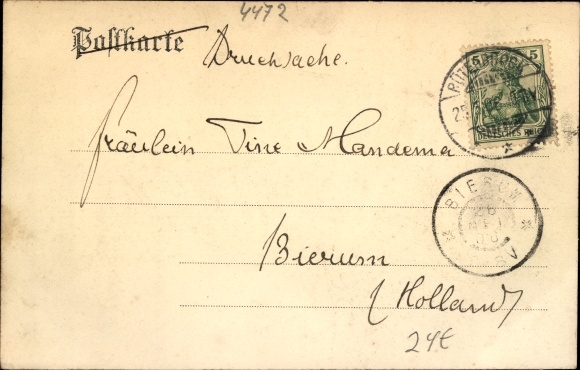 4472
Postkarte
Drucksache.
5
DEUTSCHES REICH
Fräulein Tine Mandema
BIERUM
Bierum
(Holland)
24€